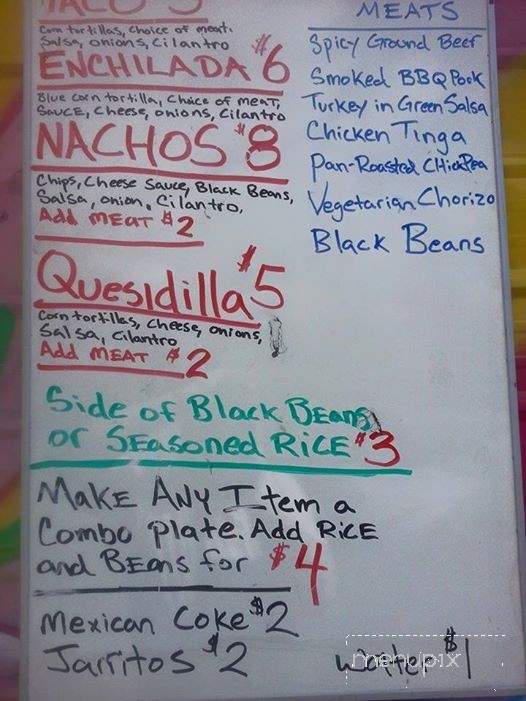 TACO
Corn tortillas, Choice of meat.
Salsa, onions, Cilantro
ENCHILADA $6
Blue corn tortilla, Choice of meat,
Sauce, Cheese, onions, Cilantro
NACHOS $8
Chips, Cheese Sauce, Black Beans,
Salsa, onion, Cilantro,
Add MEAT $2
Quesidilla $5
Corn tortillas, cheese, onions,
Salsa, Cilantro
Add MEAT $2
Side of Black Beans
or Seasoned Rice $3
Make Any Item a
Combo plate. Add Rice
and Beans for $4
Mexican Coke $2
Jarritos $2
water $1
MEATS
Spicy Ground Beef
Smoked BBQ Pork
Turkey in Green Salsa
Chicken Tinga
Pan-Roasted Chickpea
Vegetarian Chorizo
Black Beans
menupix